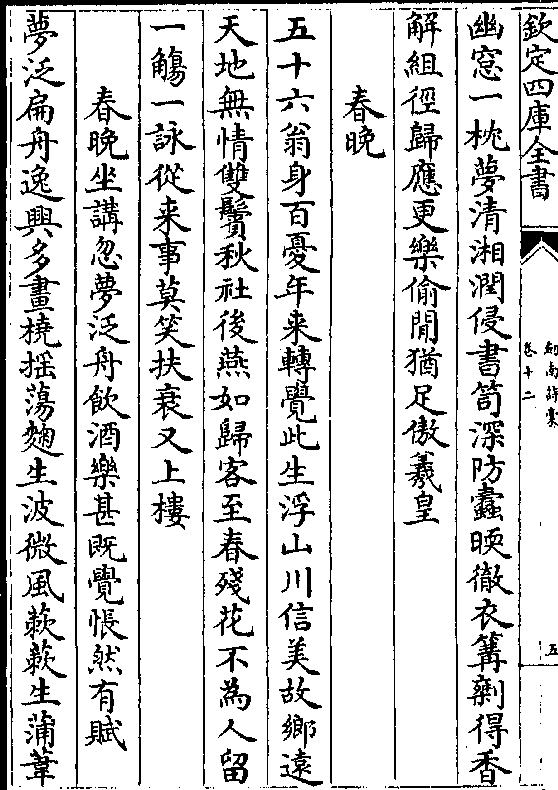 欽定四庫全書
劍南詩稾
卷十二
五
幽窓一枕夢清湘潤侵書笥深防蠧暖徹衣篝剰得香
解組徑歸應更樂偷閒猶足傲羲皇
春晚
五十六翁身百憂年来轉覺此生浮山川信美故鄉遠
天地無情雙鬢秋社後燕如歸客至春殘花不為人留
一觴一詠從来事莫笑扶衰又上樓
春晚坐講忽夢泛舟飲酒樂甚既覺悵然有賦
夢泛扁舟逸興多畫橈摇蕩麴生波微風蔌蔌生蒲葦